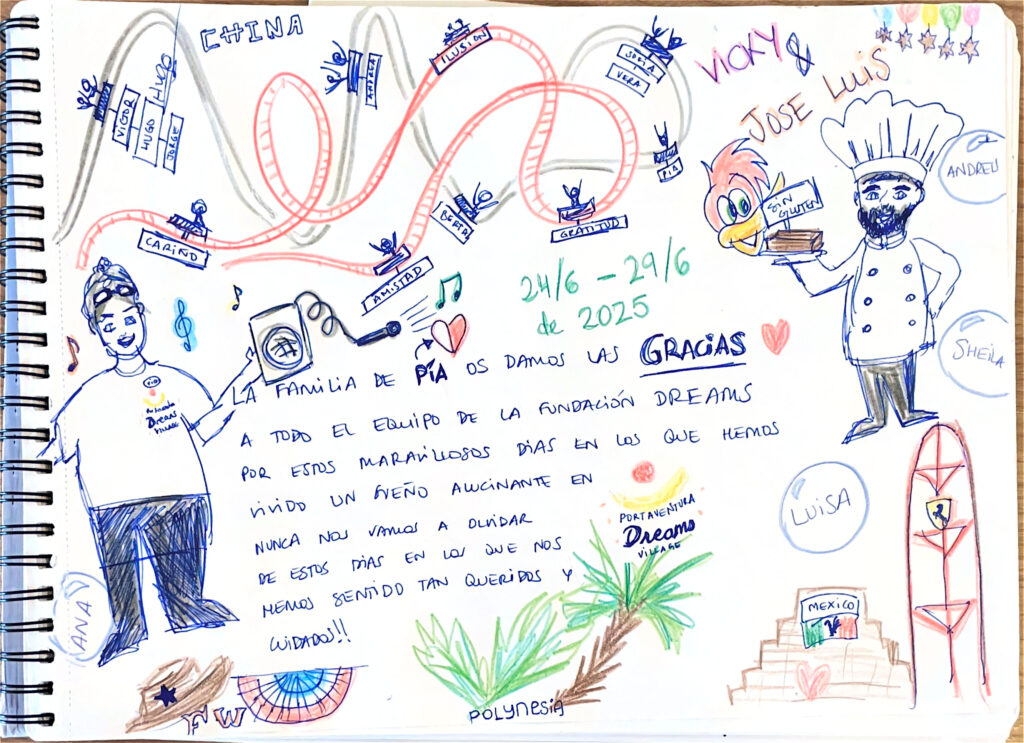 CHINA
VICKY &
JOSE LUIS
ILUSION
ANDREA
SOFIA
VERA
VIGOR
HUGO
HUGO
JORGE
PIA
BERTA
CARIÑO
GRATITUD
AMISTAD
SIN
GLUTEN
ANDREU
24/6 - 29/6
de 2025
SHEILA
LA FAMILIA DE PÍA OS DAMOS LAS GRACIAS
A TODO EL EQUIPO DE LA FUNDACIÓN DREAMS
POR ESTOS MARAVILLOSOS DÍAS EN LOS QUE HEMOS
VIVIDO UN SUEÑO ALUCINANTE EN
PORTAVENTURA
Dreams
VILLAGE
NUNCA NOS VAMOS A OLVIDAR
DE ESTOS DÍAS EN LOS QUE NOS
HEMOS SENTIDO TAN QUERIDOS Y
CUIDADOS!!
Dreams
VILLAGE
LUISA
ANA
MEXICO
FW
POLYNESIA